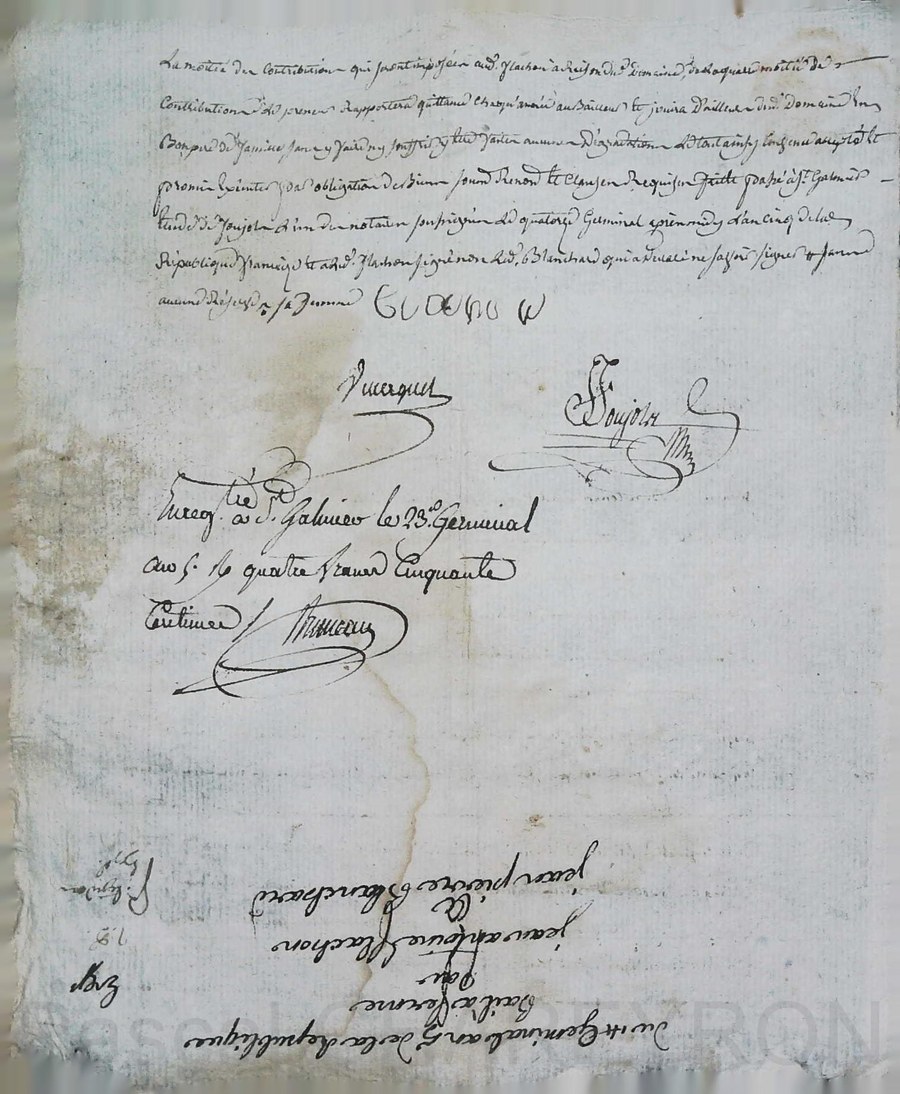 La moitié des Contributions qui seront imposées aud. flachon à Raison dud. Domaine, de laquelle moitié de
Contributions led. preneur Rapportera quittance chaqu'année au Bailleur et jouira d'ailleurs dud. Domaine En
Bon père de famille sans y faire ny souffrir y être faites aucunes Dégradations Et tout ainsy Convenu accepté Et
promis Exécuter par obligation de Biens soumis Renon. Et Clauses Requises fait et passé à St. Galmier
Etude de Joujols L'un des notaires soussignés Le quatorze Germinal après midy L'an cinq de la
République française Et a led. flachon signé non led. Blanchard qui a déclaré ne savoir signer
aucune
Enregtré. à St. Galmier le 23. Germinal
an 5. R quatre francs Cinquante
Centimes
Du 14 Germinal an 5 de la Republique
Bail à ferme
par
jean antoine flachon
à
jean pierre Blanchard
Exp.